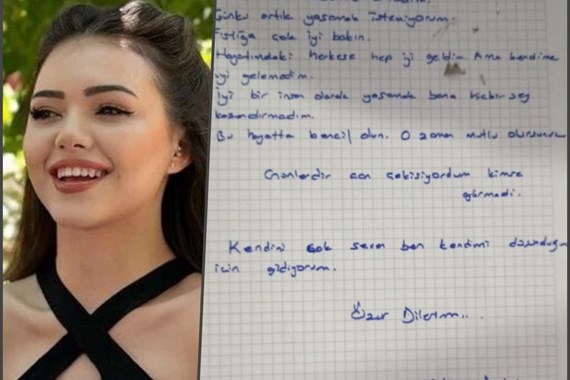 Çünkü artık yaşamak istemiyorum.
Fıstığa çok iyi bakın.
Hayatımdaki herkese hep iyi geldim. Ama kendime
iyi gelemedim.
İyi bir insan olarak yaşamak bana hiçbir şey
kazandırmadım.
Bu hayatta bencil olun. O zaman mutlu olursunuz
acı çekiyordum kimse
görmedi.
Kendini çok seven ben kendimi düşündüğüm
için gidiyorum.
Özür Dilerim...